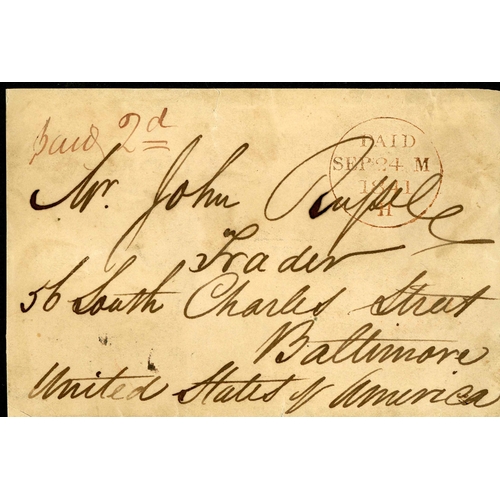 Paid 2d
PAID
SEP 24 M
H
Mr. John
Trader
56 South Charles Street
Baltimore
United States of America